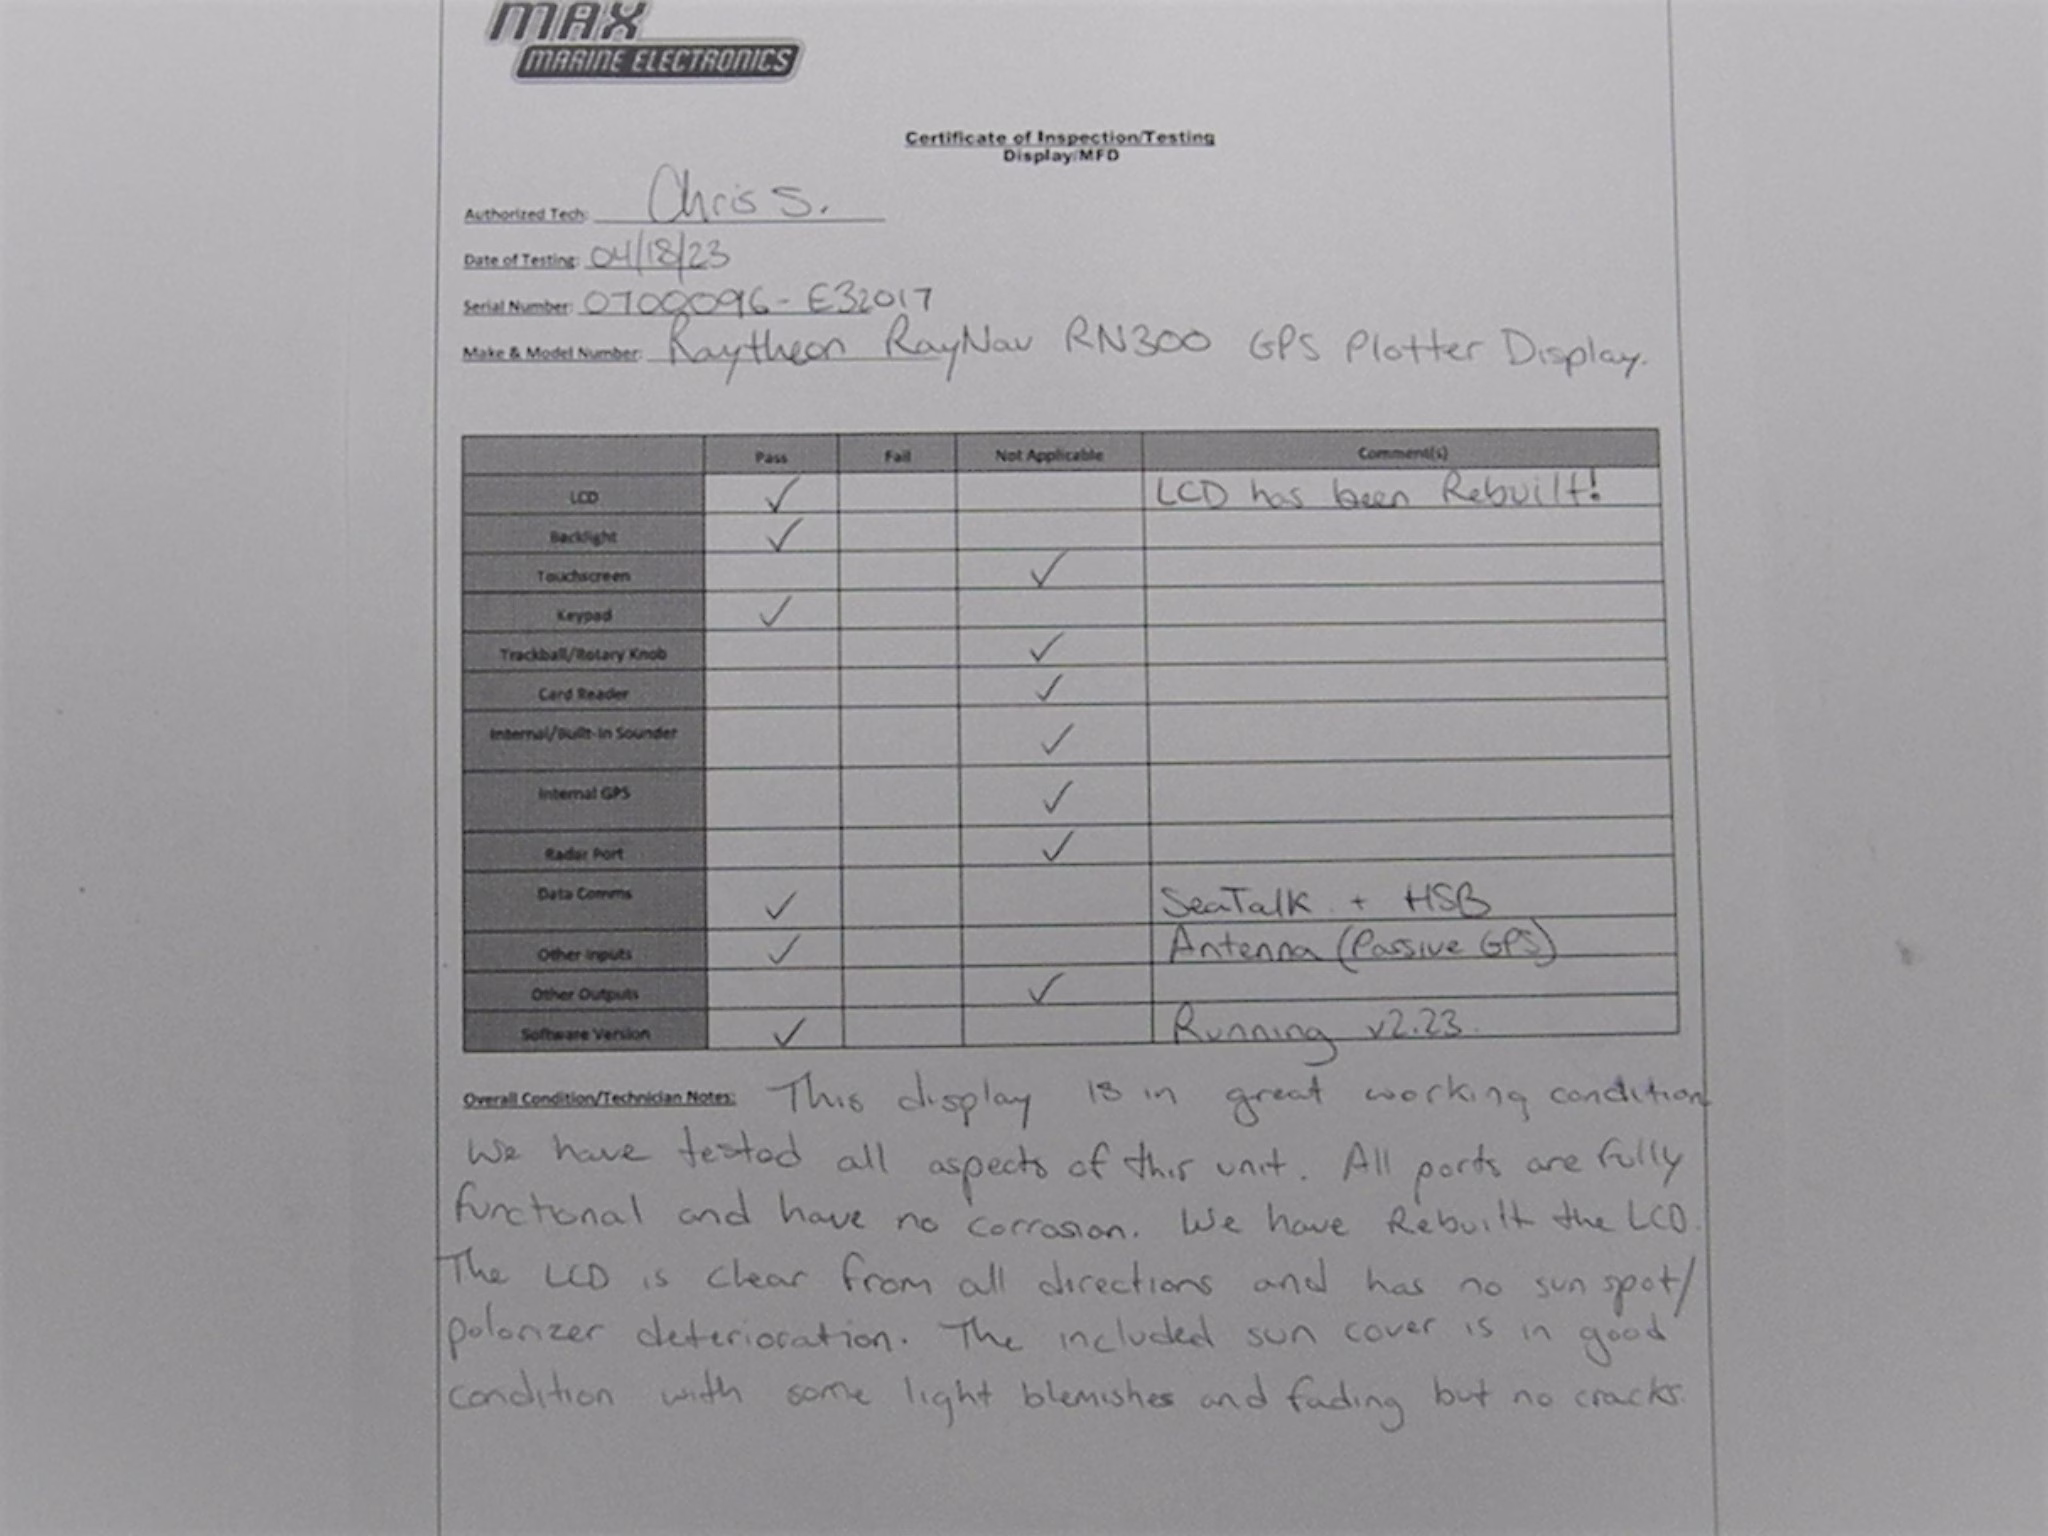 MAX
MARINE ELECTRONICS
Certificate of Inspection/Testing
Display/MFD
Authorized Tech: Chris S.
Date of Testing: 04/18/23
Serial Number: 0700096-E32017
Make & Model Number: Raytheon RayNav RN300 GPS Plotter Display.
Pass Fail Not Applicable Comment(s)
LCD ✓ LCD has been Rebuilt!
Backlight ✓
Touchscreen ✓
Keypad ✓
Trackball/Rotary Knob ✓
Card Reader ✓
Internal/Built-In Sounder ✓
Internal GPS ✓
Radar Port ✓
Data Comms ✓ SeaTalk + HSB
Other Inputs ✓ Antenna (Passive GPS)
Other Outputs ✓
Software Version ✓ Running v2.23.
Overall Condition/Technician Notes: This display is in great working condition
We have tested all aspects of this unit. All ports are fully
functional and have no corrosion. We have Rebuilt the LCD.
The LCD is clear from all directions and has no sun spot/
polarizer deterioration. The included sun cover is in good
condition with some light blemishes and fading but no cracks.